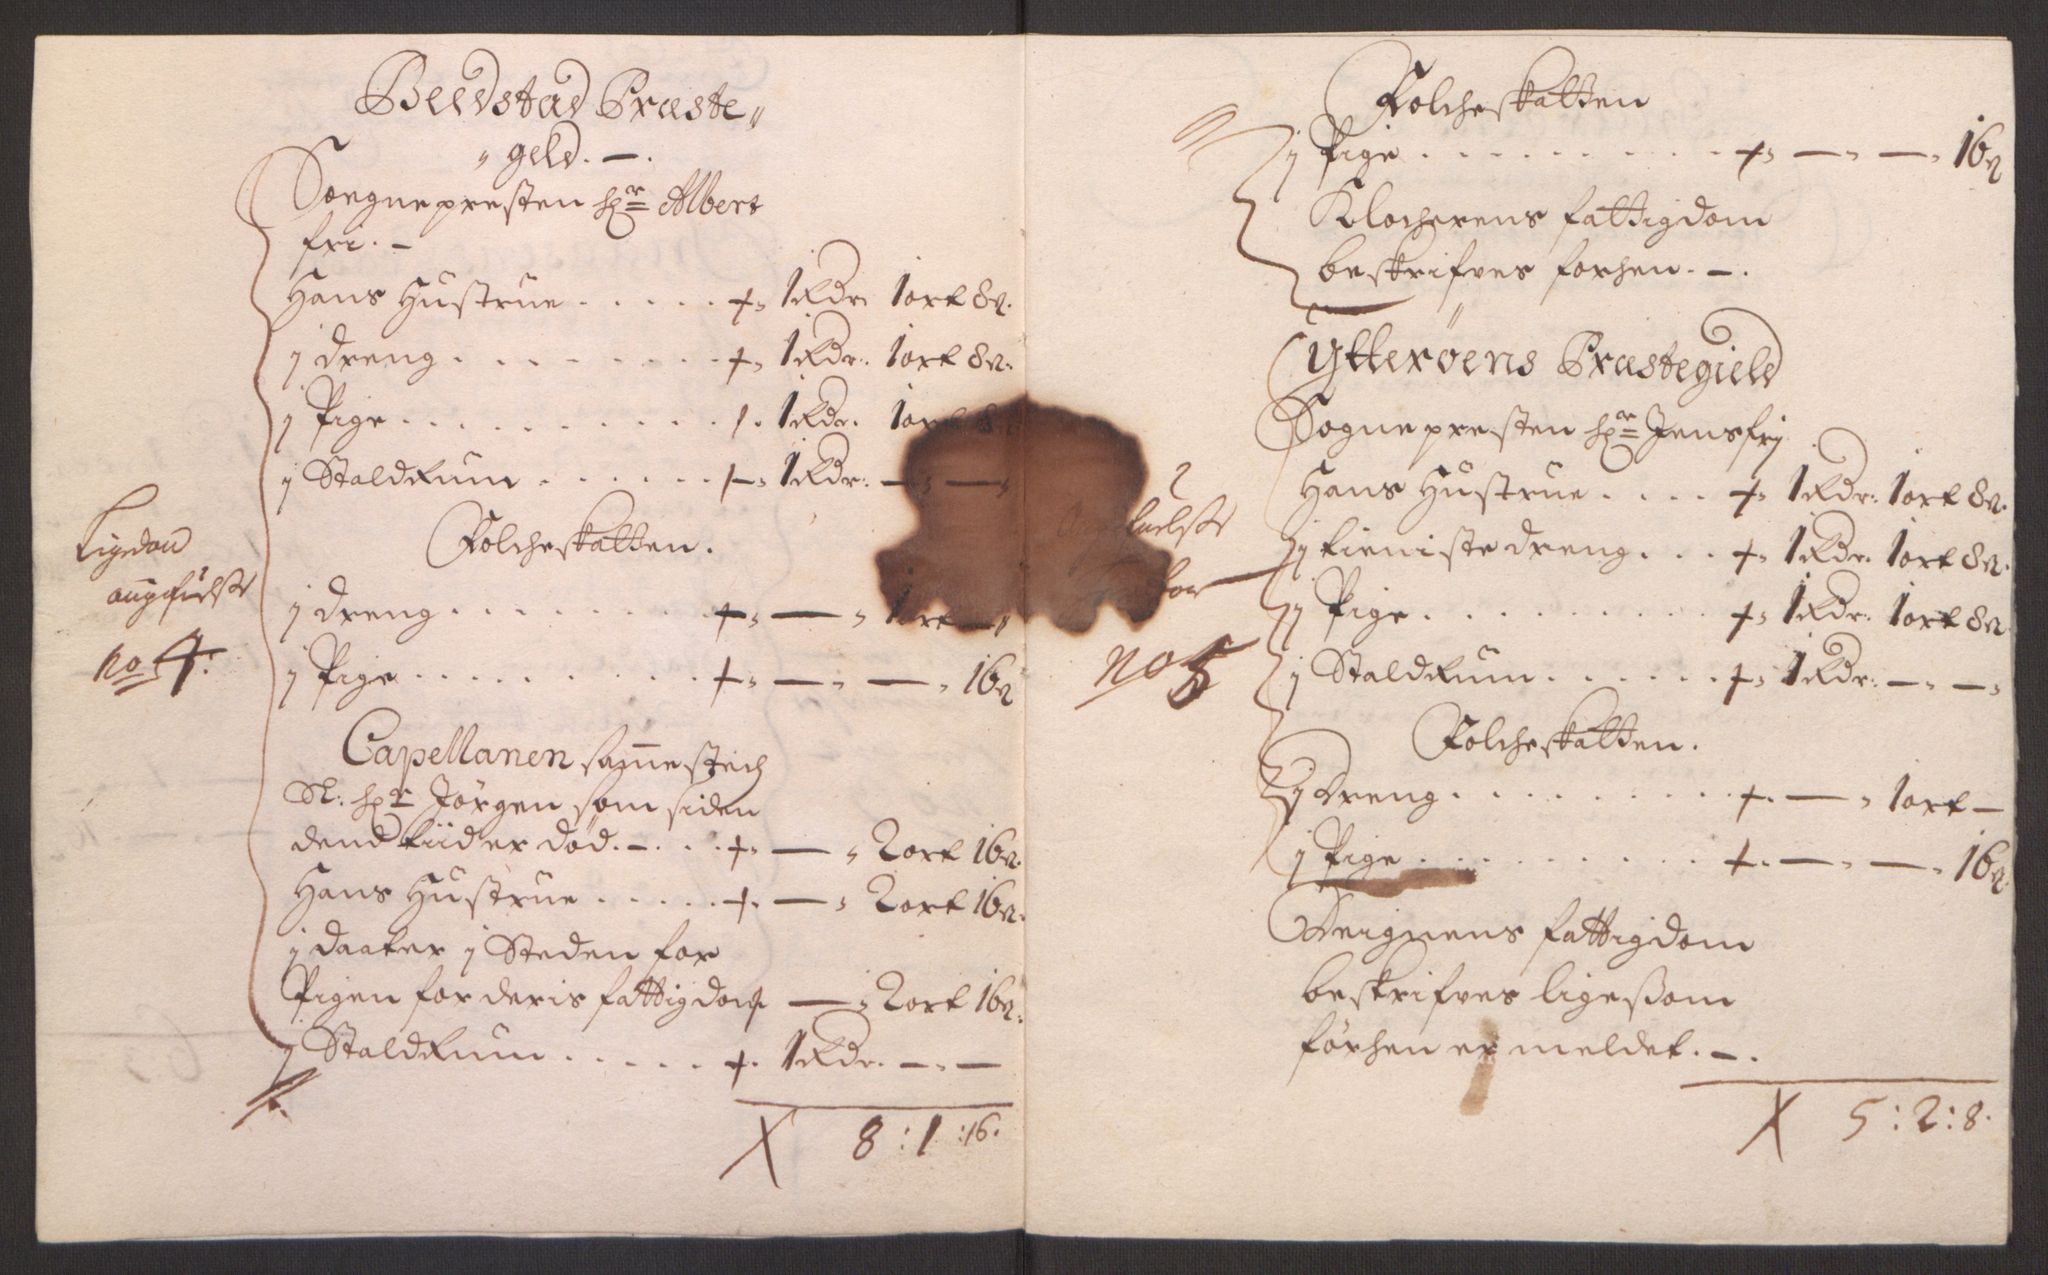 Beedstad Præste„
„geld. —.
Soegnepresten hr Albert
fri. —
Hans Hustrue . . . . . +„ 1 Rdr 1 ort 8 s.
j dreng . . . . . . . +„ 1 Rdr. 1 ort 8 s.
j Pige . . . . . . . . 1 Rdr. 1 ort 8 s.
j Staldrum . . . . . . +„ 1 Rdr. — „ — „
Folcheskatten.
j dreng . . . . . . . +„ — „ 1 ort — „
j Pige . . . . . . . . +„ — „ — „ 16 s
Capellanen sammestedz
Sl: hr Jörgen som siden
dend tiid er död. — . . +„ — „ 2 ort 16 s.
Hans Hustrue . . . . . +. — „ 2 ort 16 s.
j daater j Steden for
Pigen for deris fattigdom — „ 2 ort 16 s.
j Staldrum . . . . . +. 1 Rdr. — „ —
X 8 : 1 :16.
no 4.
Folcheskatten
j Pige . . . . . . . . +„ — „ — „ 16 s
Klocherens fattigdom
beskrifves forhen. —.
Ytteröens Præstegield
Sognepresten hr Jens frj
Hans Hustrue . . . . +„ 1 Rdr. 1 ort 8 s.
j tieniste dreng . . . +„ 1 Rdr. 1 ort 8 s.
j Pige . . . . . . . . +„ 1 Rdr. 1 ort 8 s.
j Staldrum . . . . . . +„ 1 Rdr. — „ — „
no 5
Folcheskatten.
j Dreng . . . . . . . . +. — „ 1 ort —
j Pige . . . . . . . . +. — „ — „ 16 s.
Deignens fattigdom
beskrifves ligessom
förhen er meldet. —.
X 5 : 2 : 8.